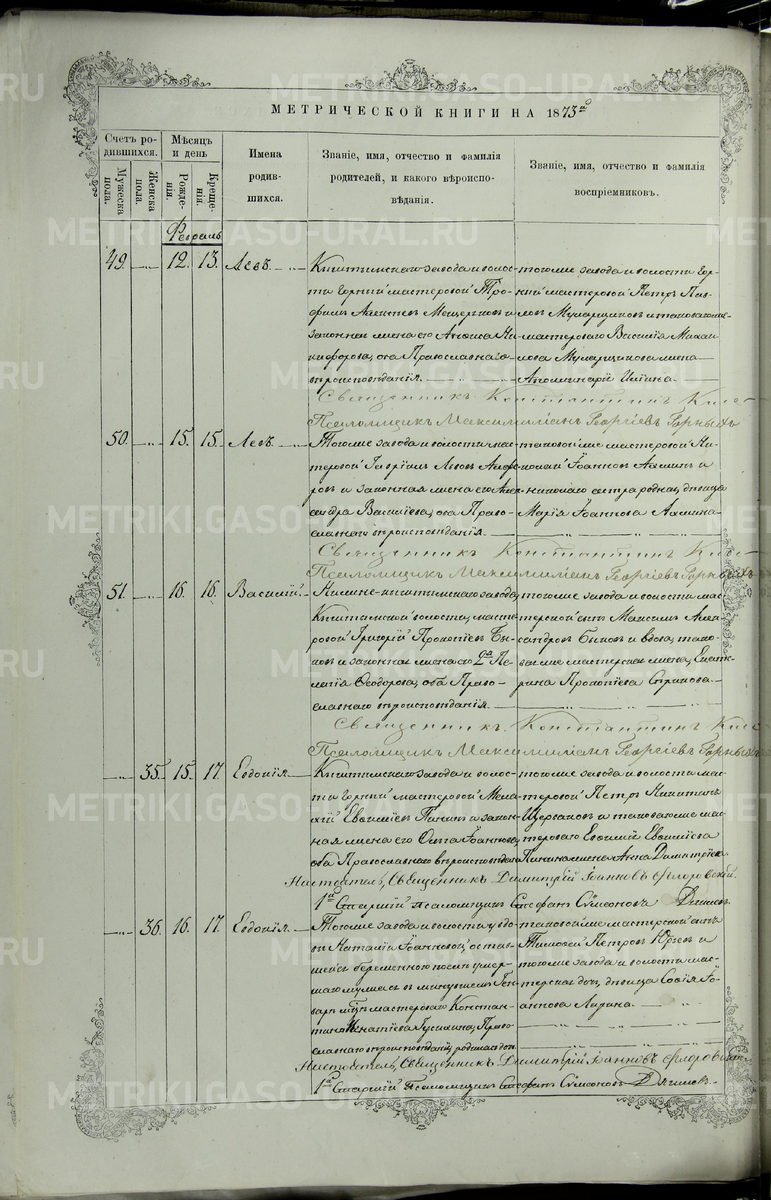 МЕТРИЧЕСКОЙ КНИГИ НА 1873й
Счетъ родившихся.
Мѣсяцъ и день
Имена родившихся.
Званіе, имя, отчество и фамилія родителей, и какого вѣроисповѣданія.
Званіе, имя, отчество и фамилія воспріемниковъ.
Мужеска пола.
Женска пола.
Рожденія.
Крещенія.
Февраль
49. 12. 13. Левъ.
Кыштымскаго завода и волости
горный мастеровой Тро-
фимъ Алексѣевъ Мещеряковъ и
законная жена его Анѳиса Ни-
кифорова, оба Православнаго
вѣроисповѣданія.
тогоже завода и волости гор-
ный мастеровой Петръ Пав-
ловъ Мулярщиковъ и таковагоже
мастероваго Василія Михай-
лова Мулярщикова жена
Аполинарія Ильина.
Священникъ Константинъ
Псаломщикъ Максимиліанъ Георгіевъ Горныхъ
50. 15. 15. Левъ.
Тогоже завода и волости мас-
теровой Гавріилъ Львовъ
и законная жена его Алек-
сандра Васильева, оба Право-
славнаго вѣроисповѣданія.
таковойже мастеровой Ни-
колай Іоанновъ и
сестра родная, дѣвица
Марія Іоаннова
Священникъ Константинъ
Псаломщикъ Максимиліанъ Георгіевъ Горныхъ
51. 16. 16. Василій.
Нижне-кыштымскаго завода,
Кыштымской волости, масте-
ровой Григорій Прокопіевъ Бы-
ковъ и законная жена его 2го Пе-
лагія Ѳеодорова, оба Право-
славнаго вѣроисповѣданія.
тогоже завода и волости мас-
терской сынъ Максимъ Алек-
сандровъ Быковъ и вдова, тако-
важе мастерская жена, Екате-
рина Прокопіева
Священникъ Константинъ
Псаломщикъ Максимиліанъ Георгіевъ Горныхъ
35. 15. 17. Евдокія.
Кыштымскаго завода и волос-
ти горный мастеровой
Евѳиміевъ и закон-
ная жена его Ольга Іоаннова,
оба Православнаго вѣроисповѣданія
тогоже завода и волости мас-
теровой Петръ Никитинъ
Щербаковъ и таковагоже мас-
тероваго Евѳимія Евѳиміева
жена Анна Димитріева
Настоятель, Священникъ Димитрій Іоанновъ Флоровскій.
1й Старшій псаломщикъ Стефанъ Сѵмеоновъ
36. 16. 17. Евдокія.
Тогоже завода и волости у вдо-
вы Наталіи Іоанновой, остав-
шейся беременною послѣ умер-
шаго мужа въ минувшемъ Ген-
варѣ м-цѣ мастероваго Констан-
тина Игнатіева Право-
славнаго вѣроисповѣданія, родилась дочь.
таковойже мастерской сынъ
Тимоѳей Петровъ Юрьевъ и
тогоже завода и волости мас-
терская дочь, дѣвица Софія Іо-
аннова Ларина.
Настоятель, Священникъ Димитрій Іоанновъ Флоровскій
1й Старшій псаломщикъ Стефанъ Сѵмеоновъ
METRIKI.GASO-URAL.RU